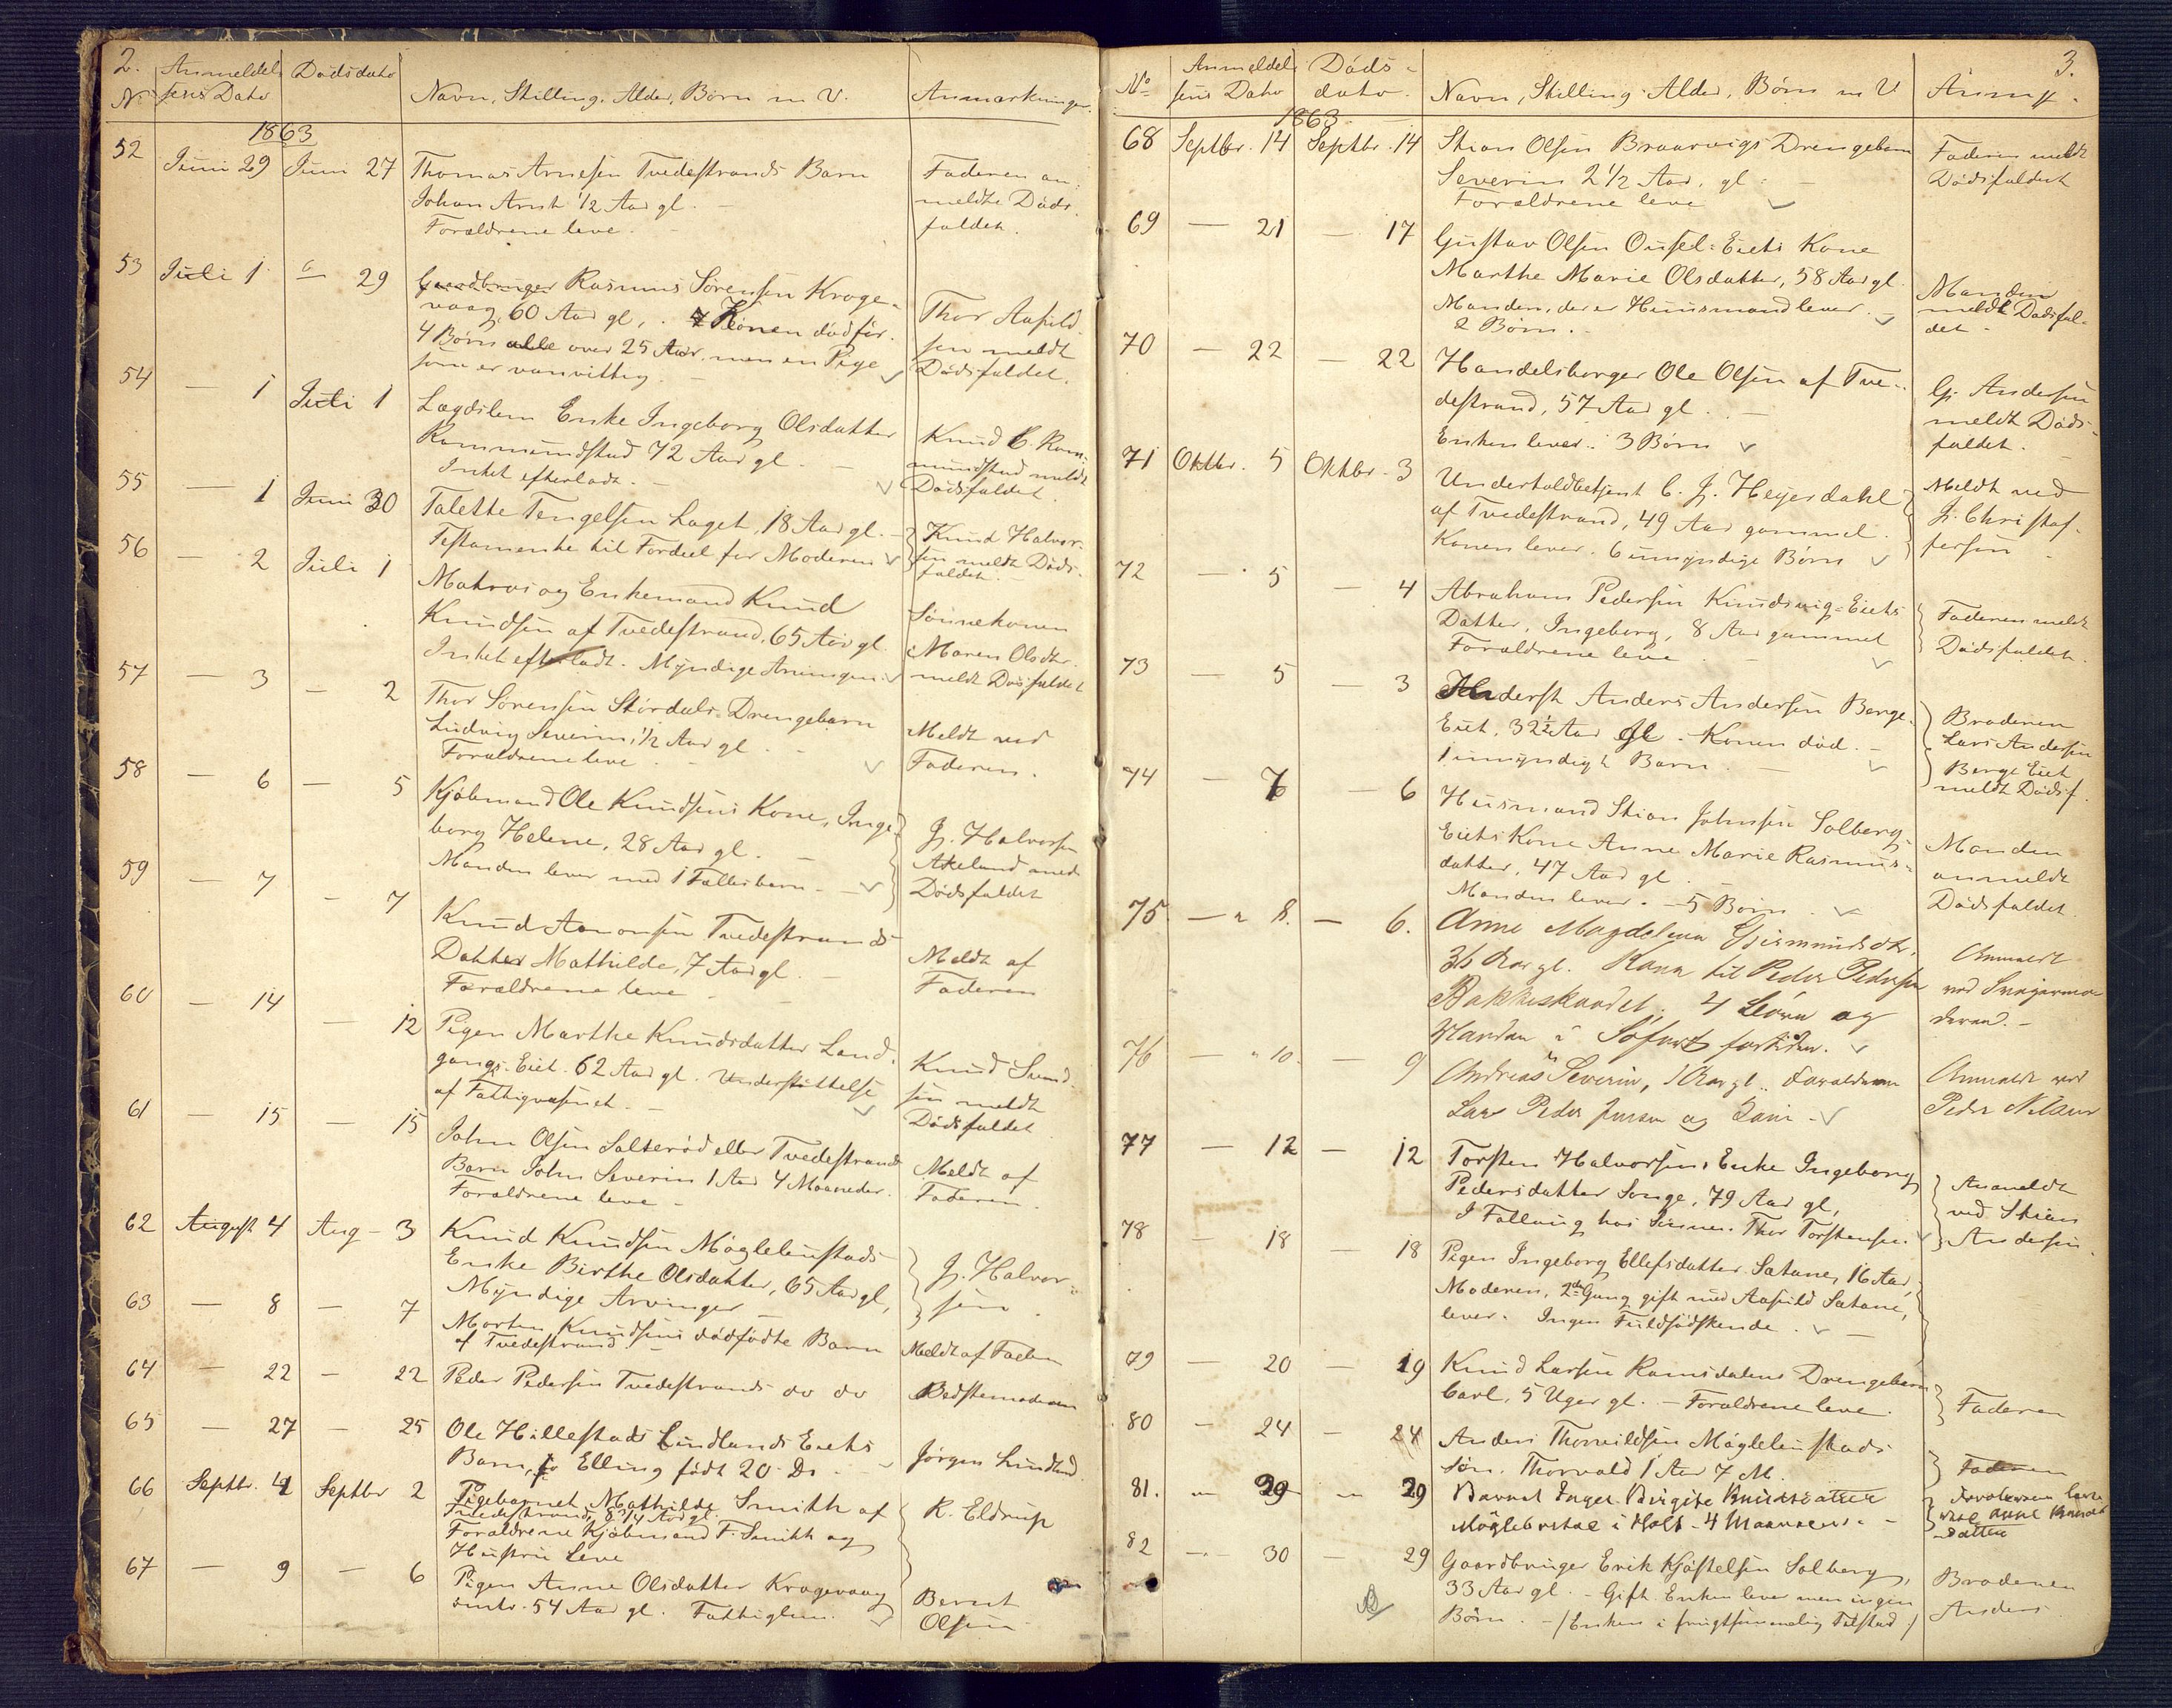 2.
No Anmeldelsens Dato Dødsdato Navn, Stilling, Alder, Børn m V. Anmærkninger
1863
52 Juni 29 Juni 27 Thomas Arnesen Tvedestrands Barn Faderen an-
Johan Arnt 1/2 Aar gl. meldte Døds-
Forældrene leve faldet.
53 Juli 1 29 Gaardbruger Rasmus Sørensen Kroge-
vaag, 60 Aar gl, Konen død før. Thor
4 Børn alle over 25 Aar, men en Pige sen meldt
som er vanvittig. Dødsfaldet.
54 — 1 Juli 1 Lægdslem Enke Ingeborg Olsdatter Knud C. Rom-
Rommundstad 72 Aar gl. mundstad meldt
Intet efterladt. Dødsfaldet.
55 — 1 Juni 30 Talette Tengelsen Laget, 18 Aar gl. Knud Halvor-
Testamente til Fordeel for Moderen sen meldt Døds-
faldet.
56 — 2 Juli 1 Matros og Enkemand Knud Sønnekonen
Knudsen af Tvedestrand, 65 Aar gl. Maren Olsdtr.
Intet efterladt. Myndige Arvinger. meldt Dødsfaldet
57 — 3 — 2 Thor Sørensen Stordals Drengebarn
Ludvig Severin, 1/2 Aar gl. Meldt ved
Forældrene leve Faderen.
58 — 6 — 5 Kjøbmand Ole Knudsens Kone, Inge- J. Halvorsen
borg Helene, 28 Aar gl. Akeland
Manden lever med 1 Fællesbarn Dødsfaldet
59 — 7 — 7 Knud Aanonsen Tvedestrands
Datter Mathilde, 7 Aar gl. Meldt af
Forældrene leve Faderen
60 — 14 — 12 Pigen Marthe Knudsdatter Land-
gangs-Eiet. 62 Aar gl. Understøttelse Knud
af Fattigvæsenet. sen meldt
Dødsfaldet
61 — 15 — 15 John Olsen Salterød eller Tvedestrands
Barn John Severin 1 Aar 4 Maaneder. Meldt af
Forældrene leve Faderen.
62 August 4 Aug - 3 Knud Knudsen Møglebustads
Enke Birthe Olsdatter, 65 Aar gl, J. Halvor-
Myndige Arvinger sen
63 — 8 — 7 Morten Knudsens dødfødte Barn
af Tvedestrand Meldt af Faderen
64 — 22 — 22 Peder Pedersen Tvedestrands do do Bedstemoderen
65 — 27 — 25 Ole Hillestads Lindlands Eiets
Barn, Elling født 20 Ds. Jørgen Lindland
66 Septbr. 4 Septbr 2 Pigebarnet Mathilde Smith af R. Eldrup
Tvedestrand, Aar gl.
Forældrene Kjøbmand F. Smith og
Hustru leve
67 — 9 — 6 Pigen Anne Olsdatter Krogevaag Bernt
54 Aar gl. Fattiglem. Olsen
3.
No Anmeldelsens Dato Døds-dato Navn, Stilling, Alder, Børn m V Anmk.
1863
68 Septbr. 14 Septbr. 14 Stian Olsen Braarvigs Drengebarn Faderen meldt
Severin 2 1/2 Aar gl. Dødsfaldet
Forældrene leve
69 — 21 — 17 Gustav Olsen Eiets Kone
Marthe Marie Olsdatter, 58 Aar gl. Manden
Manden, der er Huusmand lever. meldt Dødsfal-
2 Børn. det
70 — 22 — 22 Handelsborger Ole Olsen af Tve- G. Andersen
destrand, 57 Aar gl. meldt Døds-
Enken lever. 3 Børn faldet.
71 Oktbr. 5 Oktbr. 3 Undertoldbetjent C. J. Heyerdahl Meldt ved
af Tvedestrand, 49 Aar gammel. J. Christof-
Konen lever. 6 umyndige Børn fersen
72 — 5 — 4 Abraham Pedersen Knudsvig-Eiets Faderen meldt
Datter, Ingeborg, 8 Aar gammel Dødsfaldet.
Forældrene leve
73 — 5 — 3 Anders Andersen Berge- Broderen
Eiet, 32 1/2 Aar gl. Konen død. Lars Andersen
1 umyndigt Barn Berge Eiet
meldt Dødsf.
74 — 6 — 6 Husmand Stian Johnsen Solberg-
Eiets Kone Anne Marie Rasmus- Manden
datter, 47 Aar gl. anmeldt
Manden lever. 5 Børn. Dødsfaldet.
75 — " 8. — 6. Anne Magdelena Gjermundsdtr,
36 Aar gl. Kone til Peder Pedersen Anmeldt
4 Børn og ved Svigermo-
Manden i Søfart fortiden. deren.
76 — " 10. — 9 Andreas Severin, 1 Aar gl. Forældrene Anmeldt ved
Lars Peder Jensen og Peder Nilsen
77 — 12 — 12 Torsten Halvorsens Enke Ingeborg Anmeldt
Pedersdatter Songe, 79 Aar gl, ved Stian
I Føllaug hos Sønnen Thor Torstensen. Andersen.
78 — 18 — 18 Pigen Ingeborg Ellefsdatter Sætane, 16 Aar,
Moderen, 2den Gang gift med Sætane,
lever. Ingen Fuldsødskende.
79 — 20 — 19 Knud Larsen Ramsdalens Drengebarn
Carl, 5 Uger gl. — Forældrene leve. Faderen
80 — 24 — 24 Anders Thorvildsen Møglebustads
Søn, Thorvald 1 Aar 7 M. Faderen
81. — 29 — 29 Barnet Inger Birgite Knudsdatter
Møglebustad i Holt - 4 Maaneder.
82 — 30 — 29 Gaardbruger Erik Kjøstelsen Solberg, Broderen
33 Aar gl. - Gift. Enken lever men ingen Anders
Børn. - /Enken i frugtsommelig Tilstand/